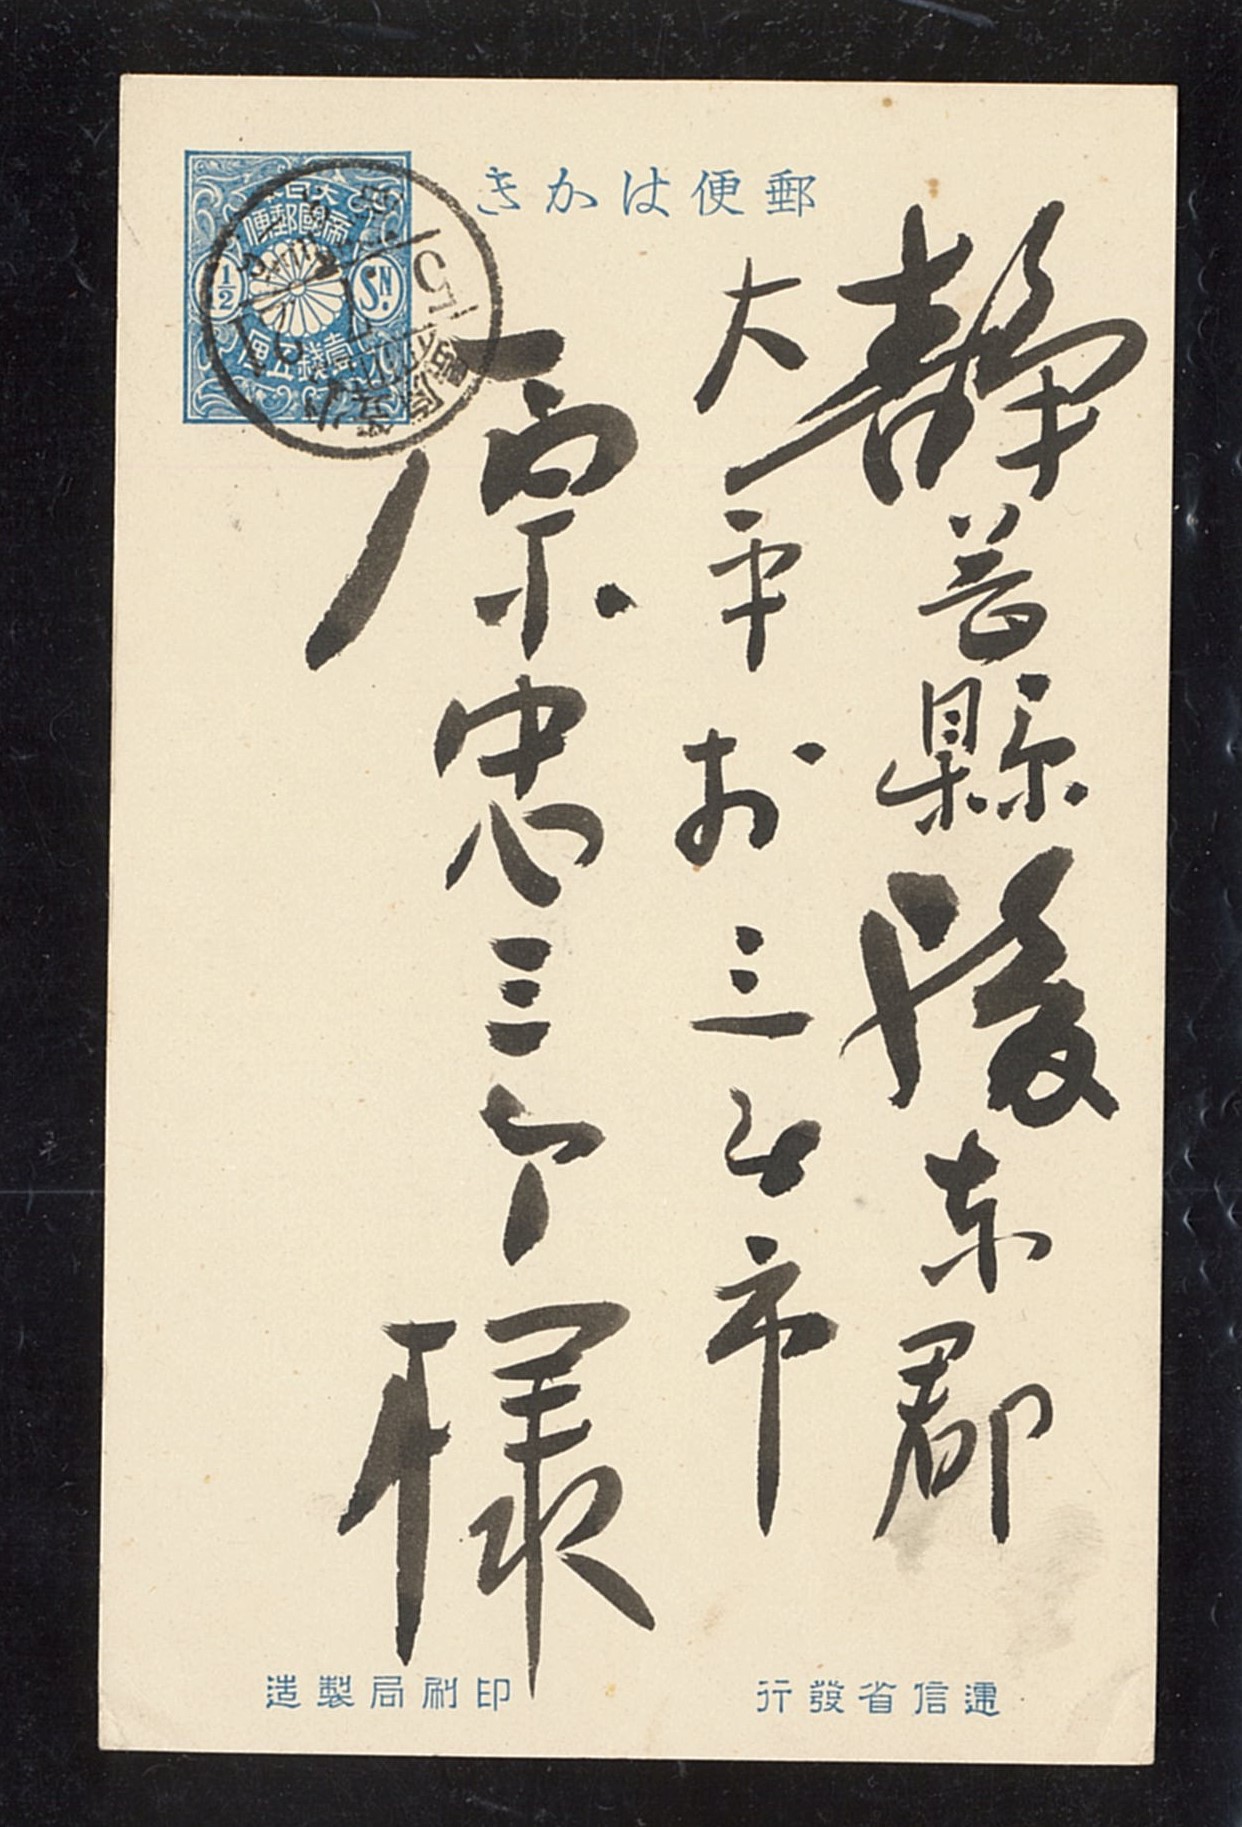 郵便はかき
大日本
帝國郵便
1½ SN.
壹錢五厘
靜岡縣駿東郡
大平村三分市
原忠三郎様
遞信省發行
印刷局製造